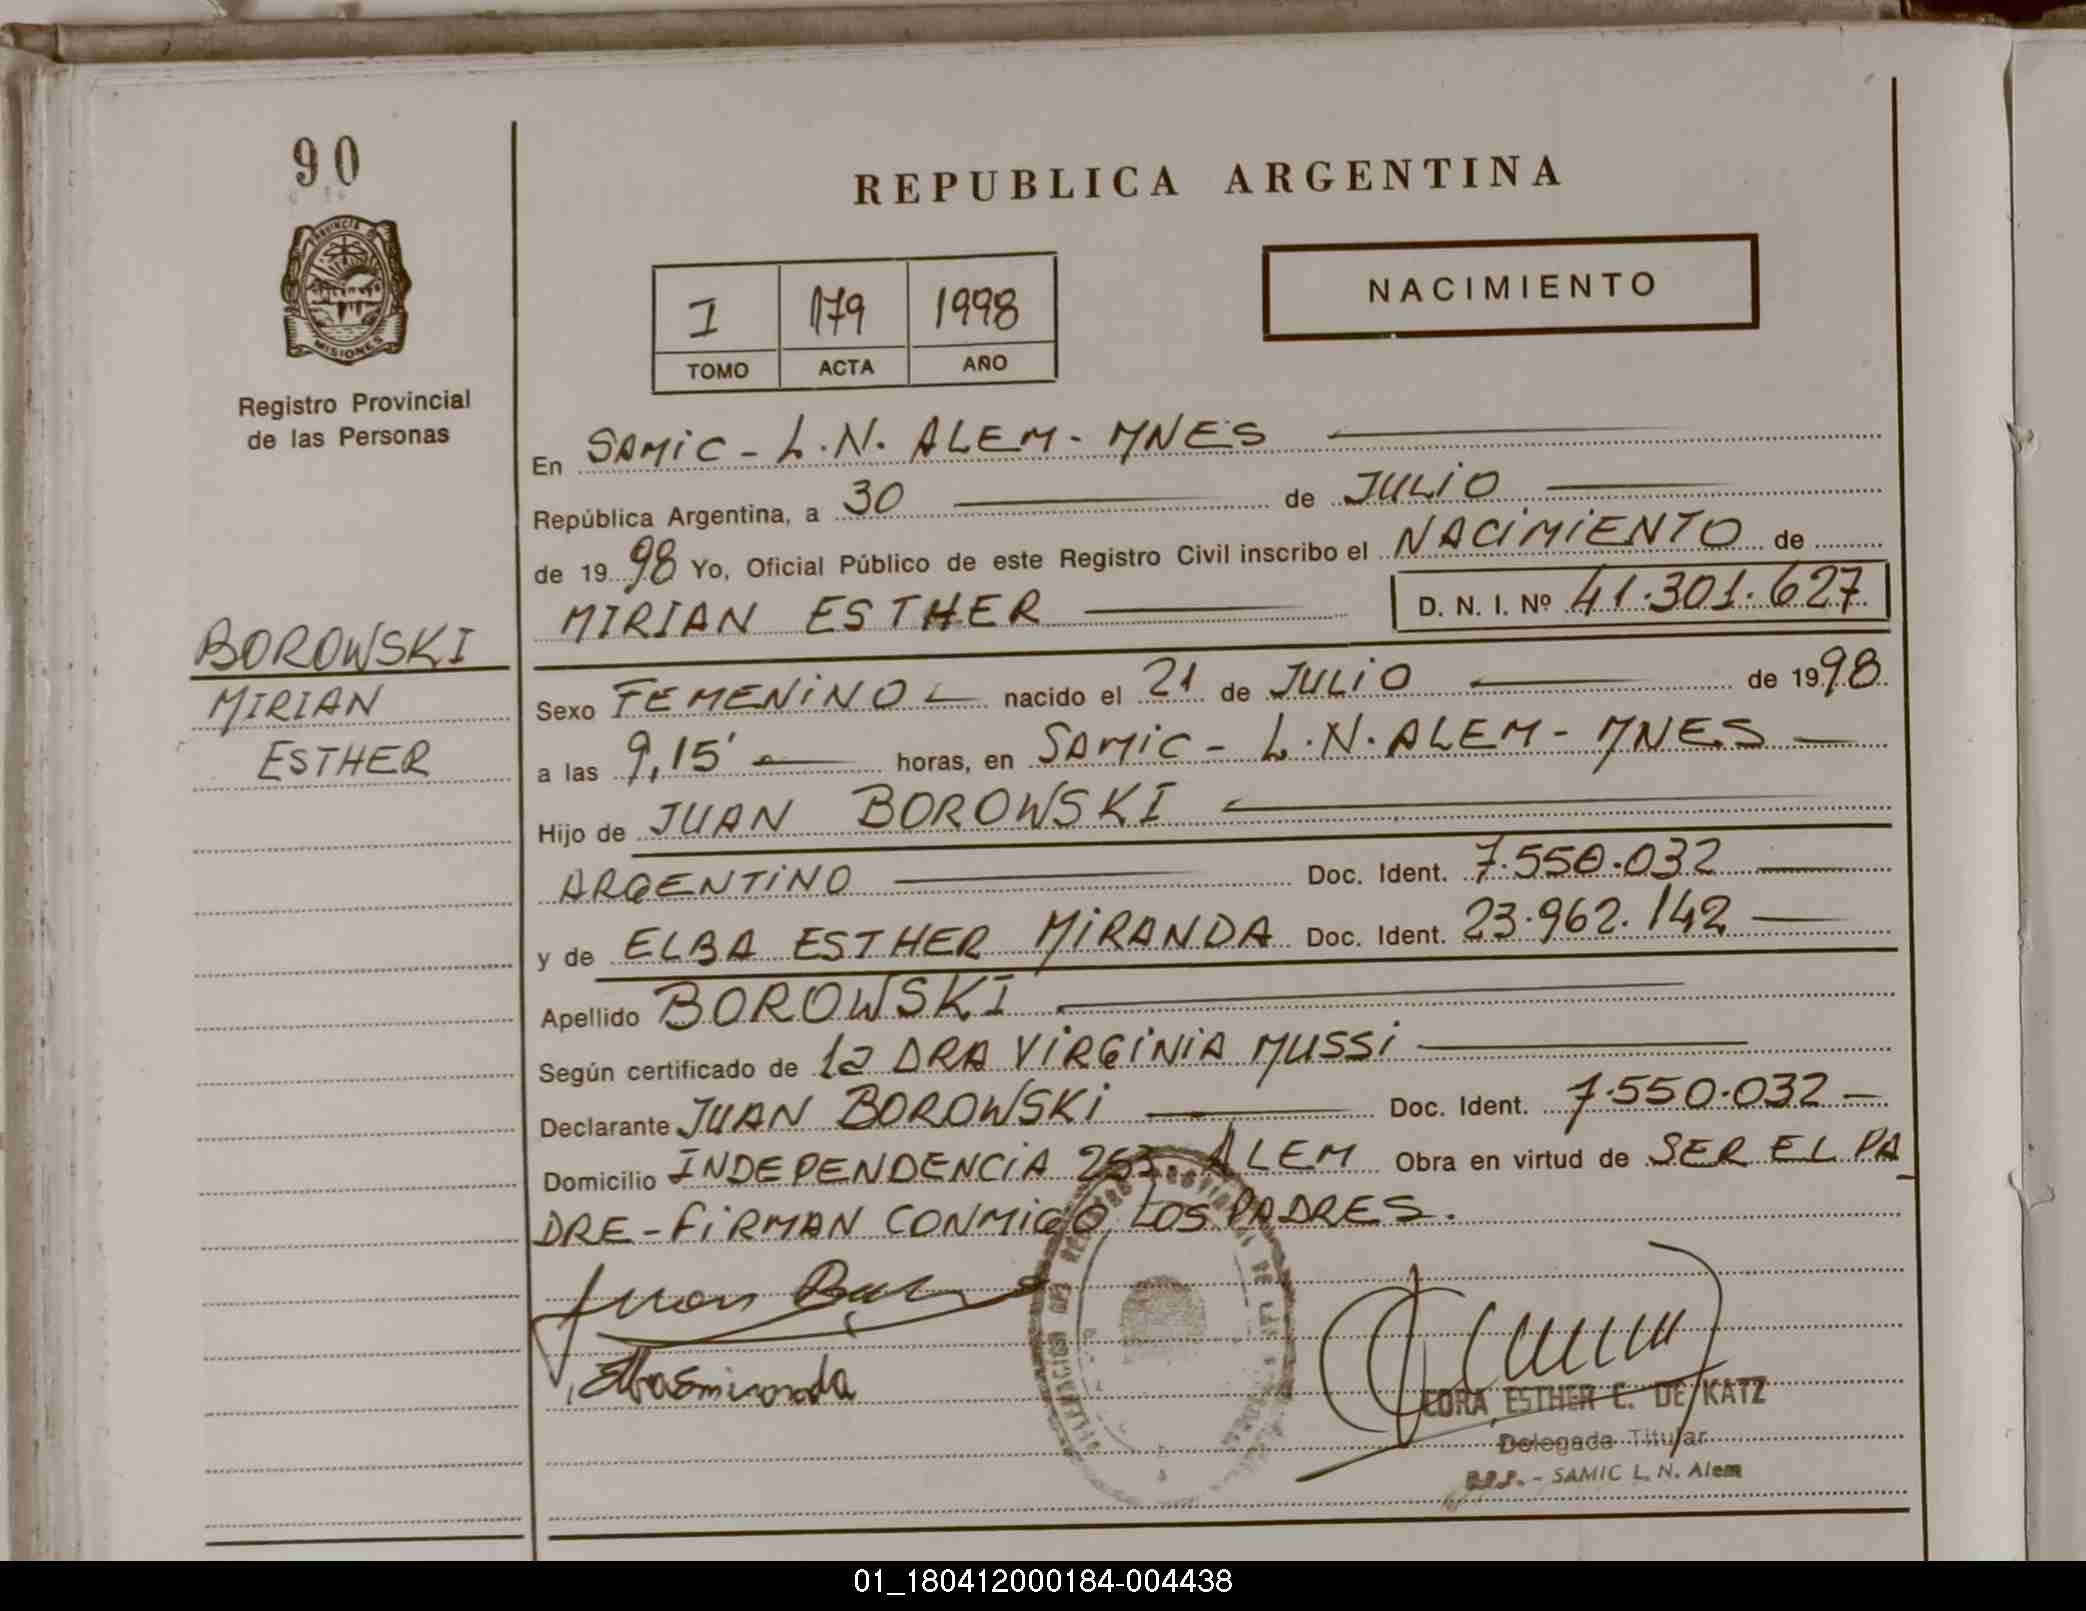 90
REPUBLICA ARGENTINA
PROVINCIA DE
MISIONES
Registro Provincial
de las Personas
I 179 1998
TOMO ACTA AÑO
NACIMIENTO
En SAMIC - L.N. ALEM - MNES
República Argentina, a 30 de JULIO
de 1998 Yo, Oficial Público de este Registro Civil inscribo el NACIMIENTO de
MIRIAN ESTHER D. N. I. Nº 41.301.627
BOROWSKI
MIRIAN
ESTHER
Sexo FEMENINO nacido el 21 de JULIO de 1998
a las 9,15' horas, en SAMIC - L.N. ALEM - MNES
Hijo de JUAN BOROWSKI
ARGENTINO Doc. Ident. 7.550.032
y de ELBA ESTHER MIRANDA Doc. Ident. 23.962.142
Apellido BOROWSKI
Según certificado de la DRA VIRGINIA MUSSI
Declarante JUAN BOROWSKI Doc. Ident. 7.550.032
Domicilio INDEPENDENCIA 253 ALEM Obra en virtud de SER EL PA
DRE - FIRMAN CONMIGO LOS PADRES.
Juan
Elba E miranda
CORA ESTHER C. DE KATZ
Delegada Titular
R.P.P. - SAMIC L. N. Alem
01_180412000184-004438